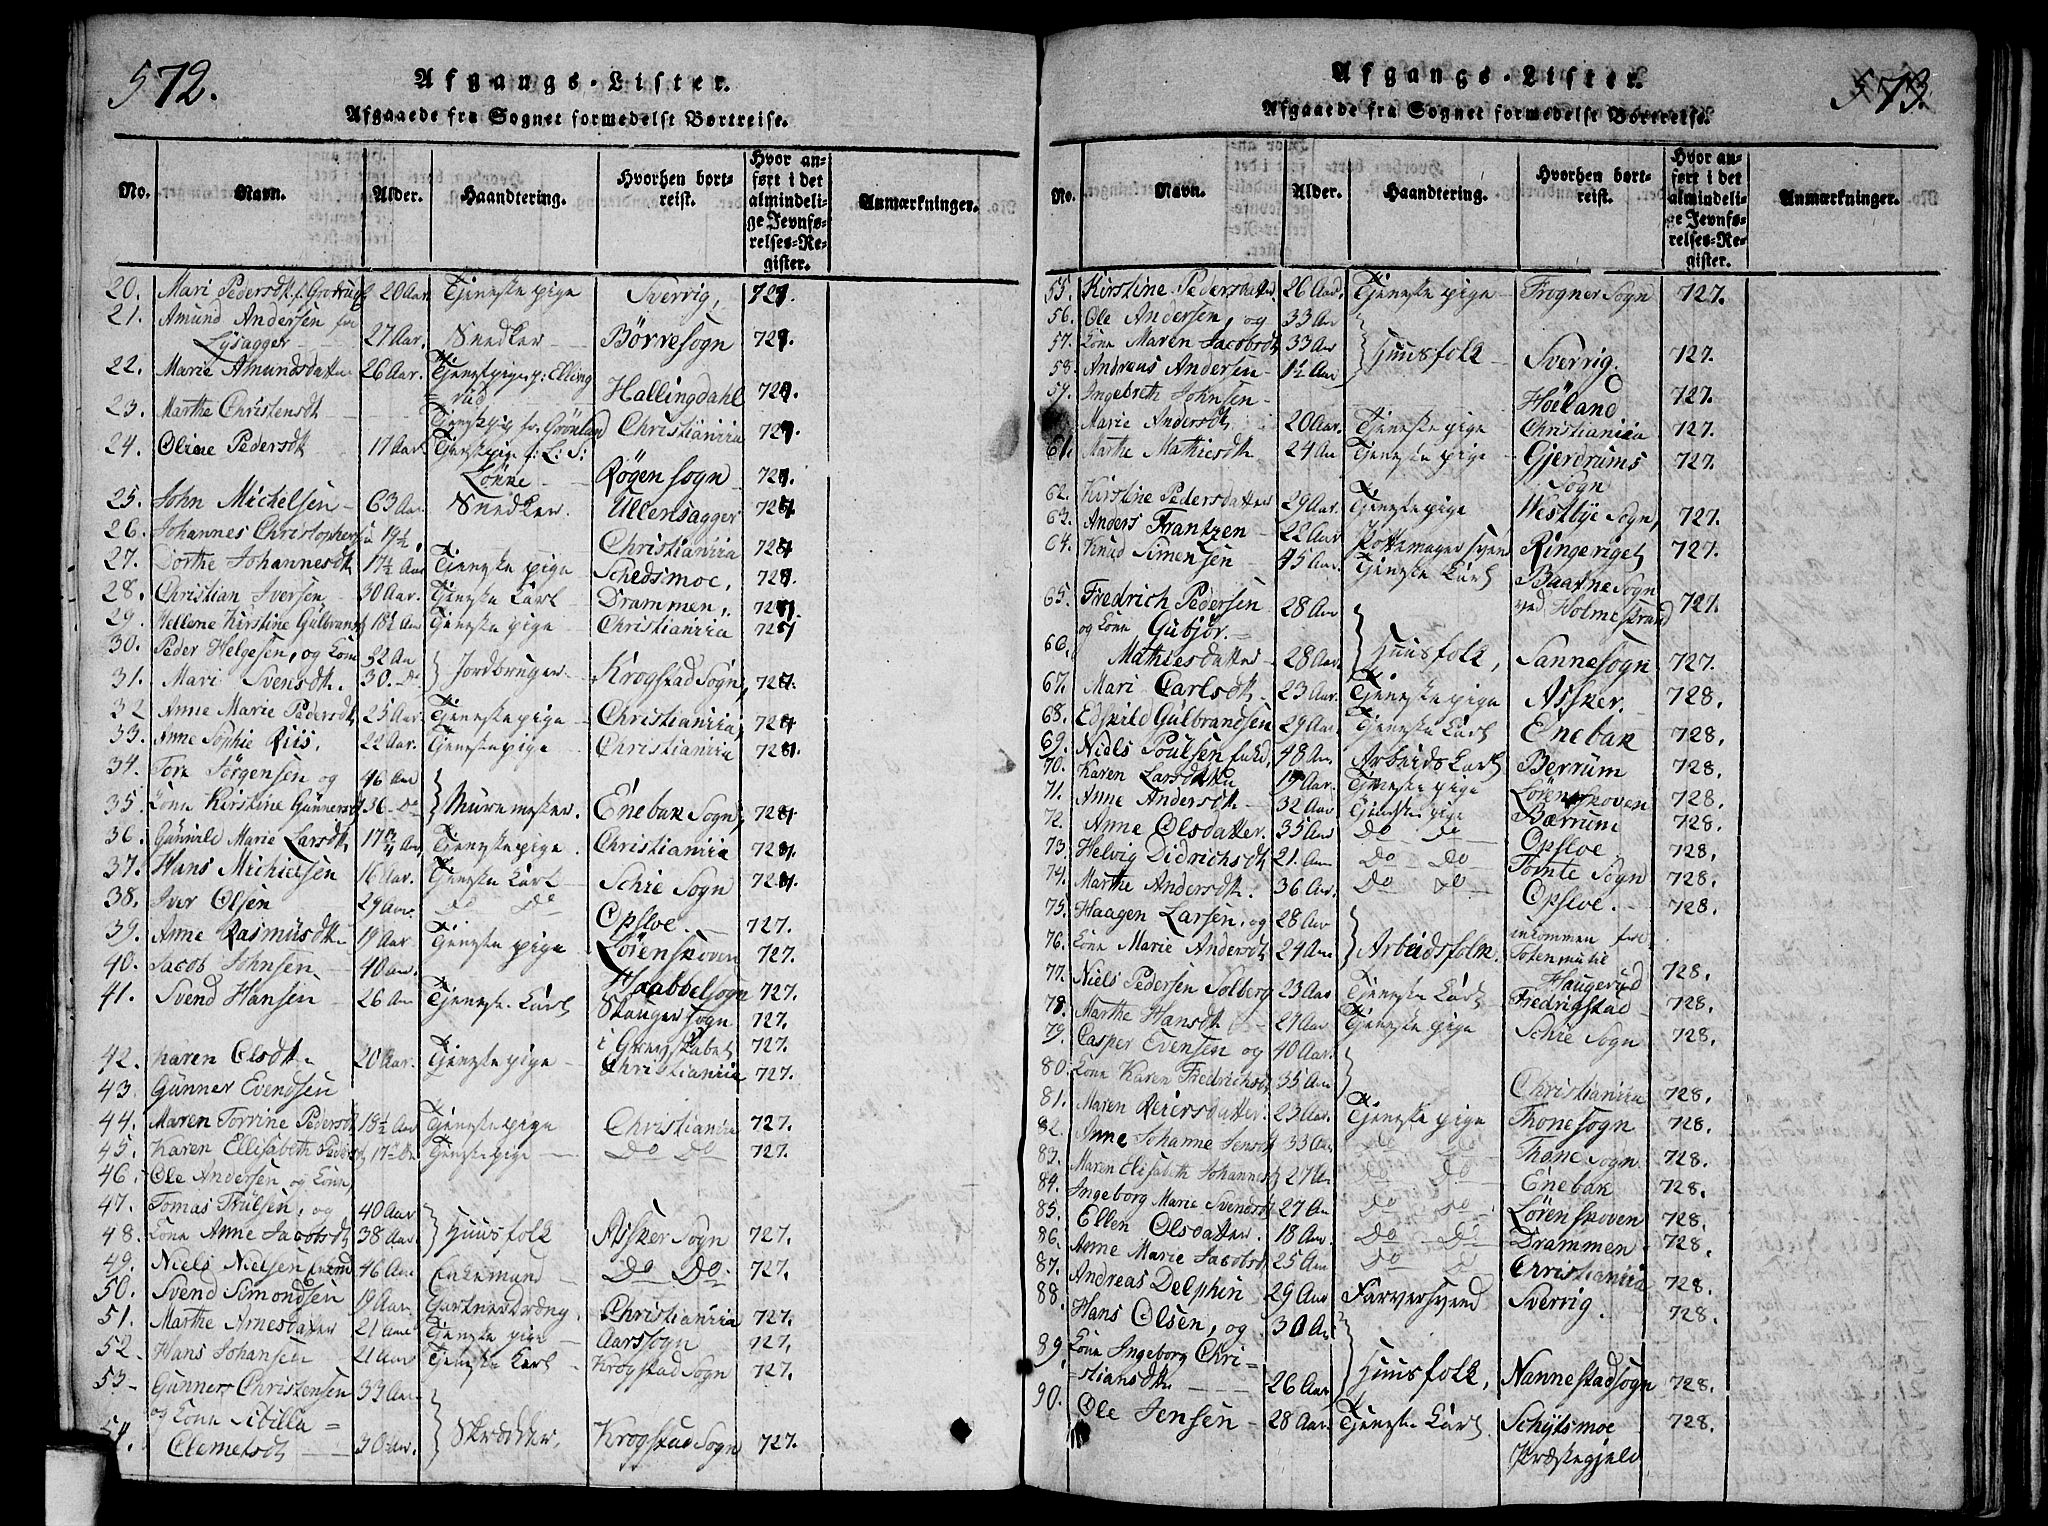 572.
Afgangs-Lister.
Afgaaede fra Sognet formedelst Bortreise.
No. Navn. Alder. Haandtering. Hvorhen bortreist. Hvor anført i det almindelige Jevnførelses-Register. Anmærkninger.
20. Mari Pedersdt. 20 Aar. Tjenestepige Sverrig, 727.
21. Amund Andersen fra
Lysagger 27 Aar. Snedker Börresogn 727.
22. Marie Amundsdatter 26 Aar. Tjenestpige p: Elling
rud Hallingdahl 727.
23. Marthe Christensdt Tjenestpig fr. Grönland Christiania 727.
24. Oline Pedersdt 17 Aar. Tjenestpige f: L: S:
Lönne Røgen sogn 727.
25. John Michelsen 63 Aar Snedker. Ullensagger 727.
26. Johannes Christophersen 19½ Christiania 727
27. Dorthe Johannesdt 17½ Aar Tjenestepige Schedsmoe, 727.
28. Christian Iversen 30 Aar. Tjeneste Karl Drammen, 727
29. Hellene Kirstine Gulbrands 18½ Aar Tjenestepige Christiania 727
30. Peder Helgesen, og Kone 32 Aar
31. Mari Svensdt. 30. Do Jordbruger Krogstad Sogn, 727.
32 Anne Marie Pedersdt 25 Aar. Tjenestepige Christiania, 727
33. Anne Sophie Riis. 22 Aar. Tjenestepige Christiania 727.
34. Tore Jörgensen og 46 Aar
35. Kone Kirstine Gunnersdt 36 Do Muremester. Enebak Sogn, 727.
36. Gunnild Marie Larsdt. 17 Aar Tjenestepige. Christiania 727.
37. Hans Michielsen 16 Aar. Tjeneste Karl Schie Sogn 727.
38. Iver Olsen 29 Aar. Do Do Opsloe. 727.
39. Anne Rasmusdt. 19 Aar Tjenestepige Lörenskoven 727.
40. Jacob Johnsen 40 Aar. Haabbelsogn 727.
41. Svend Hansen 26 Aar Tjeneste Karl Stangersogn 727.
i Grevskabet 727.
42. Karen Olsdt. 20 Aar. Tjenestepige Christiania 727.
43. Gunner Evendsen
44. Maren Torrine Pedersdt 18½ Aar Tjenestepige Christiania 727.
45. Karen Ellisabeth Pedersdt 17 Do Tjenestepige Do Do 727.
46. Ole Andersen og Kone,
47. Tomas Trulsen, og 40 Aar
48. Kone Anne Jacobsdt 38 Aar. Huusfolk Assker Sogn 727.
49. Niels Nielsen 46 Aar Enkemand Do Do. 727.
50. Svend Simondsen 19 Aar. Gartnerdræng. Christiania 727.
51. Marthe Arnesdatter 21 Aar Tjenestepige Aarssogn 727.
52. Hans Johansen 21 Aar Tjeneste Karl Krogstad Sogn 727.
53 Gunner Christensen 33 Aar
54. og Kone Sibilla =
Clemetsdt 30 Aar. Skrædder, Krogstad Sogn 727.
573.
Afgangs-Lister.
Afgaaede fra Sognet formedelst Bortreise.
No. Navn. Alder. Haandtering. Hvorhen bortreist. Hvor anført i det almindelige Jevnførelses-Register. Anmærkninger.
55. Kirstine Pedersdatter 26 Aar. Tjenestepige Frogner Sogn 727.
56. Ole Andersen, og 33 Aar
57. Kone Maren Jacobsdt 33 Aar Huusfolk Sverrig. 727.
58. Andreas Andersen 1½ Aar
59. Ingebreth Johnsen Höeland. 727.
Marie Andersdt. 20 Aar. Tjenestepige Christiania 727.
61. Marthe Mathiesdt 24 Aar Tjenestepige Gjerdrums
Sogn 727.
62. Kirstine Pedersdatter 29 Aar. Tjenestepige Westbye Sogn, 727.
63. Anders Frantzen 22 Aar Pottemager svend Ringeriget, 727.
64. Knud Simensen 45 Aar. Tjeneste Karl Baatne Sogn
ved Holmestrand 727.
65. Fredrich Pedersen 28 Aar
66. og Kone Gubjör.
Mathiesdatter 28 Aar. Huusfolk, Sannesogn 727.
67. Mari Carlsdt 23 Aar. Tjenestepige Assker. 728.
68. Edskild Gulbrandsen 29 Aar Tjeneste Karl Enebak 728.
69. Niels Poulsen 48 Aar Arbeids Karl Berrum 728.
70. Karen Larsdatter 19 Aar. Tjenestepige Lörenskoven 728.
71. Anne Andersdt. 32 Aar Tjenestepige Bærrum 728.
72. Anne Olsdatter. 35 Aar. Do Do Opsloe 728.
73. Helvig Didrichsdt 21. Aar Do Do Tomte Sogn 728.
74. Marthe Andersdt. 36 Aar. Do Do Opsloe. 728.
75. Haagen Larsen, og 28 Aar inkommen fra
76. Kone Marie Andersdt 24 Aar Arbeidsfolk. Totenmulie
Haugerud 728.
77. Niels Pedersen Solberg 23 Aar Tjeneste Karl Fredrigstad 728.
78. Marthe Hansdt. 27 Aar Tjenestepige Schie Sogn 728.
79. Casper Evensen og 40 Aar.
80. Kone Karen Fredrichsdt 35 Aar Christiania 728.
81. Maren Reiersdatter. 23 Aar. Tjenestepige Thonesogn 728.
82. Anne Johanne Jensdt 33 Aar Do Do Thone Sogn 728.
83. Maren Elisabeth Johannesdt 27 Ar Do Do Enebak 728.
84. Ingeborg Marie Svendsdt 27 Aar Do Do Lörenskoven 728.
85. Ellen Olsdatter. 18 Aar. Do Do Drammen 728.
86. Anne Marie Jacobsdt 25 Aar Do Do Christiania 728.
87. Andreas Delphin 29 Aar Farversvend Sverrig. 728.
88. Hans Olsen, og 30 Ar
89. Kone Ingeborg Chri=
=stiansdt 26 Aar Huusfolk, Nannestadsogn 728.
90. Ole Jensen 28 Aar. Tjeneste Karl. Schijtsmoe
Præstegjeld 728.